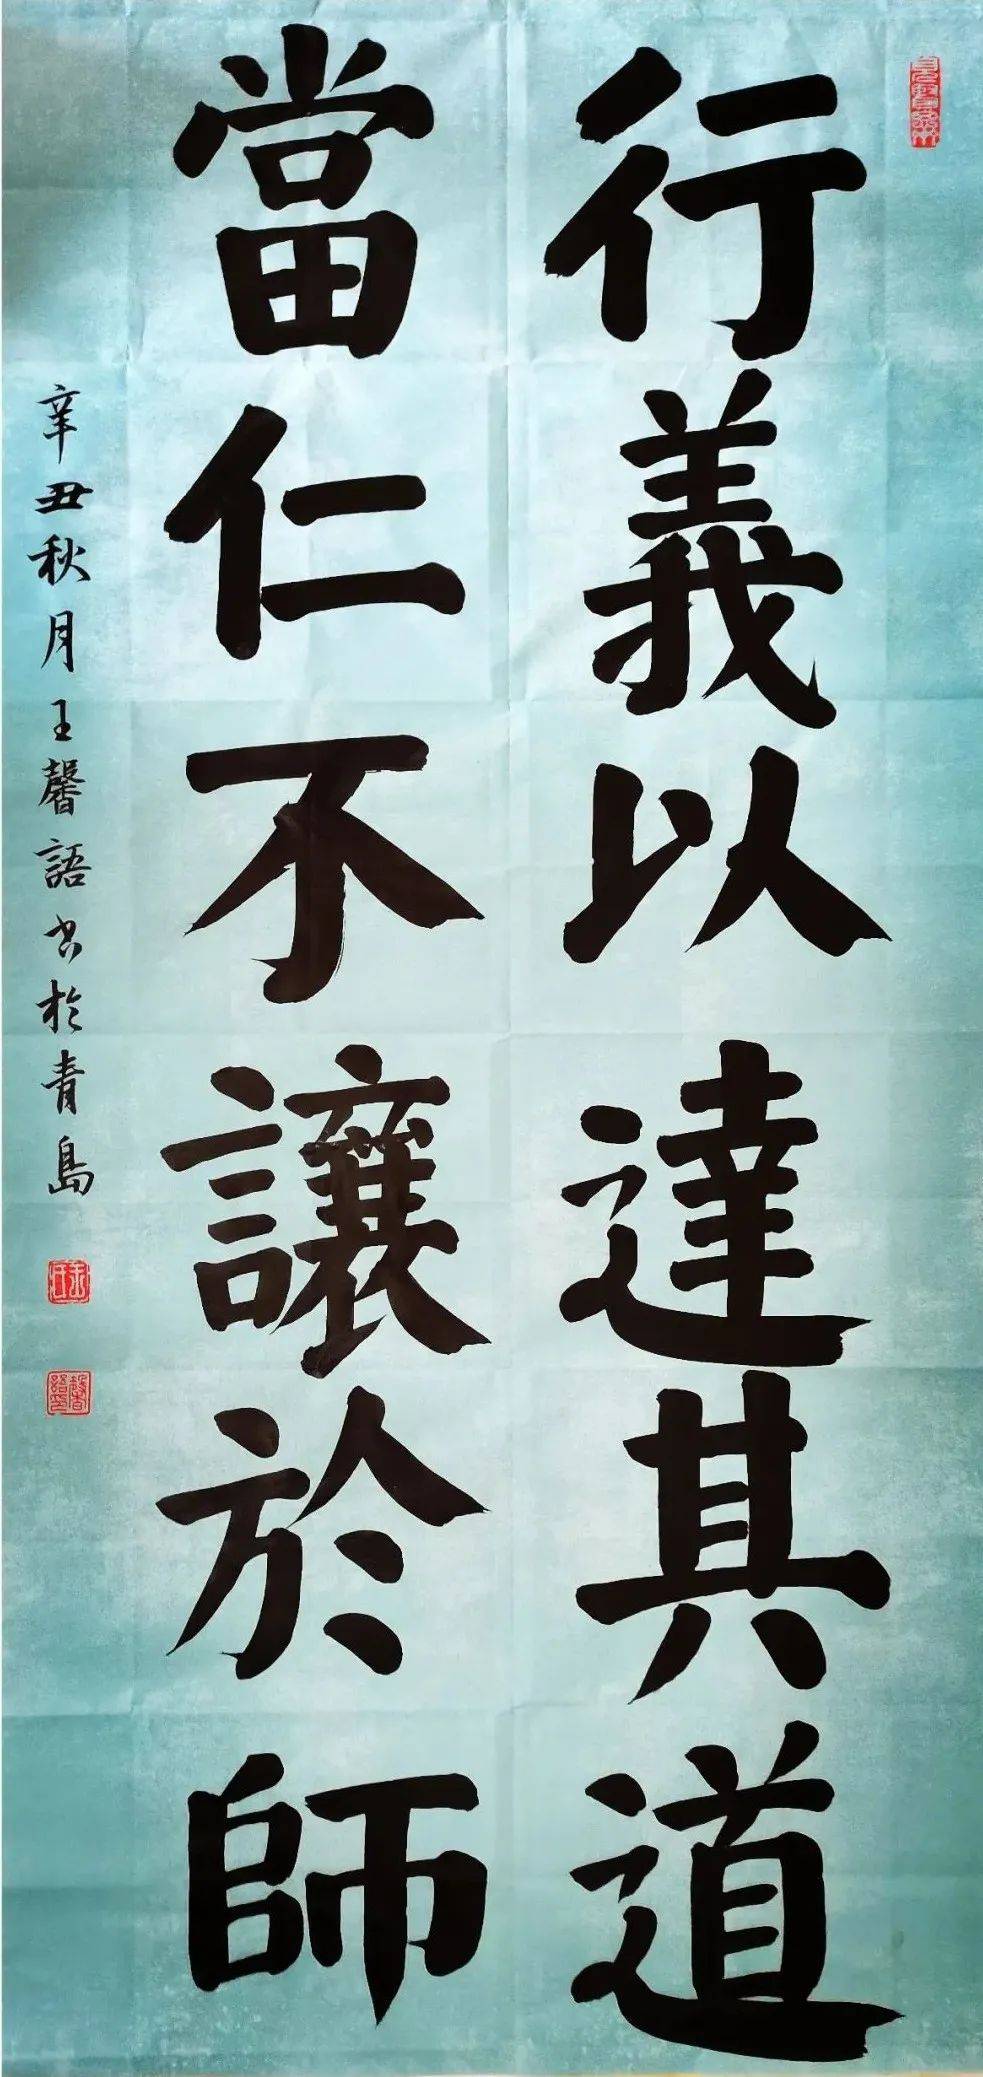 行義以達其道
當仁不讓於師
辛丑秋月王馨語书於青島